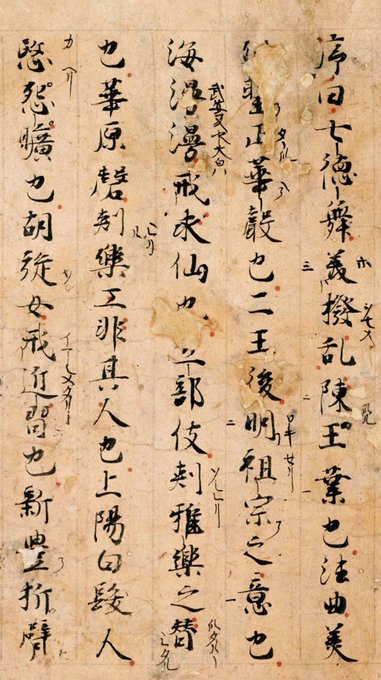 序曰七徳舞美撥乱陳王業也法曲美
列聖正華聲也二王後明祖宗之意也
海漫漫戒求仙也立部伎刺雅樂之替
也華原磬刺樂工非其人也上陽白髮人
愍怨曠也胡旋女戒近習也新豊折臂